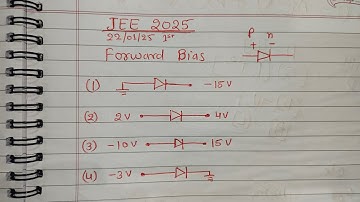 JEE 2025
22/01/25 1st
Forward Bias
P n
+ -
(1) -15V
(2) 2V 4V
(3) -10V 15V
(4) -3V